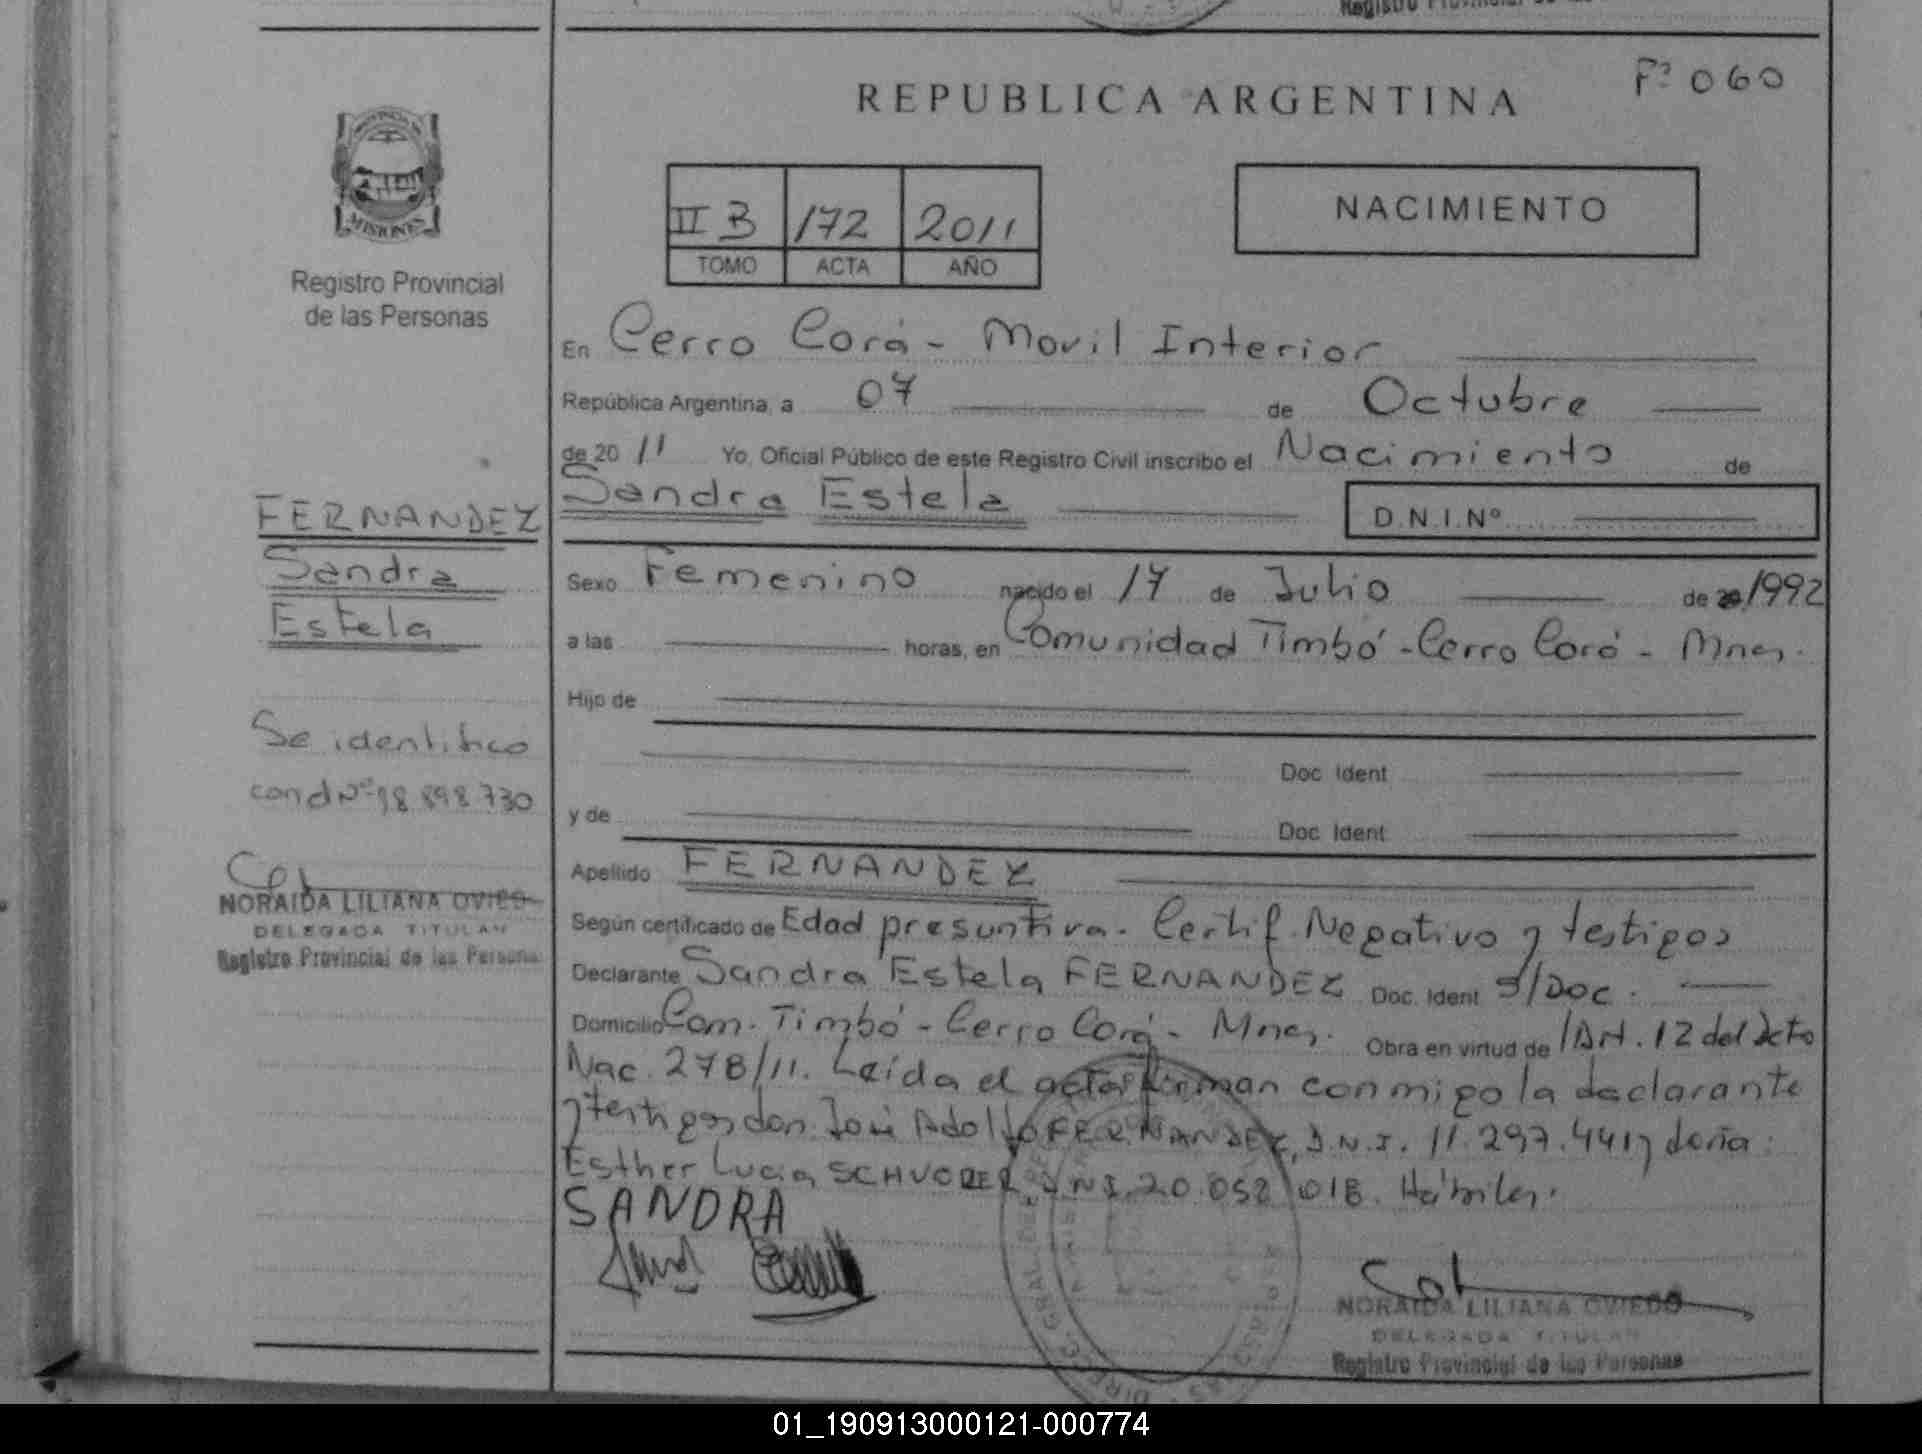 Registro Provincial de las
F° 060
REPUBLICA ARGENTINA
PROVINCIA DE
MISIONES
Registro Provincial
de las Personas
II B 172 2011
TOMO ACTA AÑO
NACIMIENTO
En Cerro Corá - Movil Interior
República Argentina, a 07 de Octubre
de 20 11 Yo, Oficial Público de este Registro Civil inscribo el Nacimiento de
Sandra Estela
D.N.I.Nº
FERNANDEZ
Sandra
Estela
Sexo Femenino nacido el 17 de Julio de 1992
a las horas, en Comunidad Timbó - Cerro Corá - Mnes.
Hijo de
Doc. Ident
y de
Doc. Ident
Se identifico
con dNº 98 898 730
NORAIDA LILIANA OVIEDO
DELEGADA TITULAR
Registro Provincial de las Personas
Apellido FERNANDEZ
Según certificado de Edad presuntiva. Certif. Negativo y testigos
Declarante Sandra Estela FERNANDEZ Doc. Ident S/Doc.
Domicilio Com. Timbó - Cerro Corá - Mnes. Obra en virtud de Art. 12 del Dcto
Nac. 278/11. Leída el acta firman conmigo la declarante
y testigos don José Adolfo FERNANDEZ, D.N.I. 11.297.441 y doña:
Esther Lucia D.N.I. 20.052.018. Hábiles.
SANDRA
NORAIDA LILIANA OVIEDO
DELEGADA TITULAR
Registro Provincial de las Personas
01_190913000121-000774